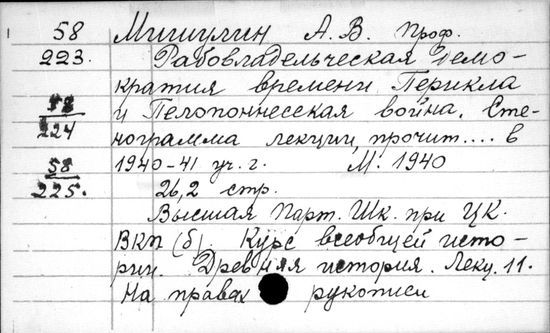 58 Мишулин А. В. Проф.
223. Рабовладельческая демо-
кратия времени Перикла
58 и Пелопоннесская война. Сте-
224 нограмма лекции, прочит.... в
58 1940-41 уч. г. М. 1940
225. 26,2 стр.
Высшая Парт. Шк. при ЦК.
ВКП (б). Курс всеобщей исто-
рии. Древняя история. Лекц. 11.
На правах рукописи